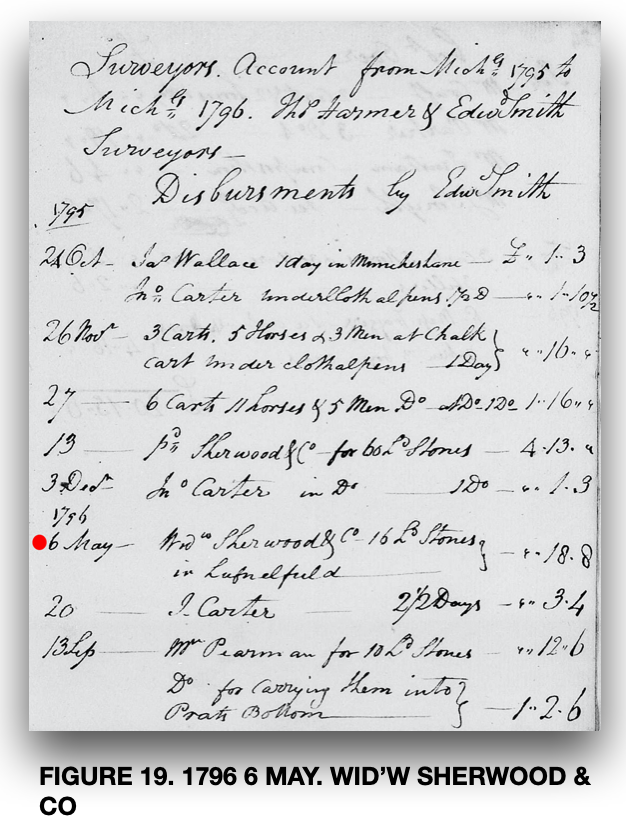 Surveyors. Account from Mich.s 1795 to
Mich.s 1796. Tho.s Farmer & Edw.d Smith
Surveyors —
Disbursments by Edw.d Smith
1795
24 Oct — Ja.s Wallace 1 day in — £ " 1 .. 3
Jn.o Carter under Clothalpens 1½ D — " .. 1 - 10½
26 Nov.r 3 Carts. 5 Horses & 3 Men at Chalk
cart under clothalpens — 1 Day } " .. 16 .. "
27 — 6 Carts 11 horses & 5 Men. D.o at D.o 1 D.o 1 .. 16 .. "
13 — p.d Sherwood & C.o for 60 L.d Stones — 4 . 13 . "
3 Dec.r Jn.o Carter in D.o — 1 D.o — " .. 1 .. 3
1796
6 May — Wid.w Sherwood & C.o 16 L.d Stones
in } — " .. 18 .. 8
20 — J. Carter — 2½ Days — " .. 3 .. 4
13 Sep — Mr Pearman for 10 L.d Stones — " .. 12 .. 6
D.o for Carrying them into
Prats Bottom — } — 1 .. 2 .. 6
FIGURE 19. 1796 6 MAY. WID'W SHERWOOD &
CO